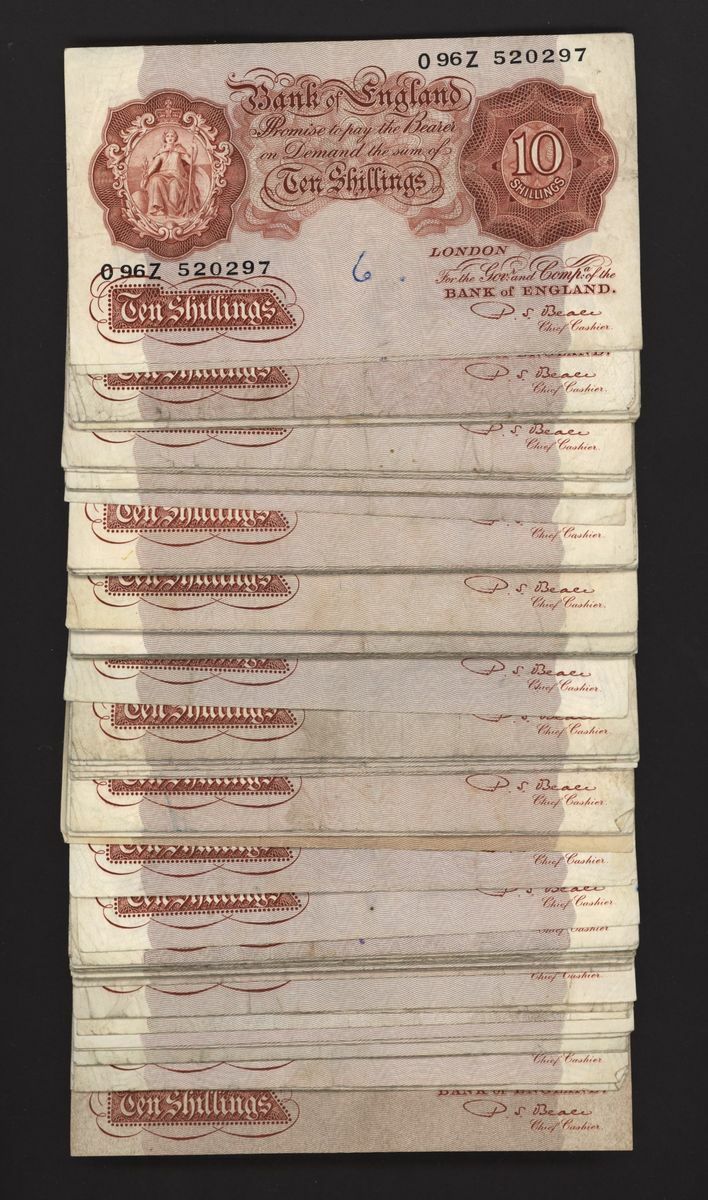 O 96Z 520297
Bank of England
Promise to pay the Bearer
on Demand the sum of
Ten Shillings
10
SHILLINGS
LONDON
For the Govr. and Compa. of the
BANK of ENGLAND.
O 96Z 520297
6
Ten Shillings
P. S. Beale
Chief Cashier.
Ten Shillings
P. S. Beale
Chief Cashier.
P. S. Beale
Chief Cashier.
Ten Shillings
Chief Cashier.
Ten Shillings
P. S. Beale
Chief Cashier.
P. S. Beale
Chief Cashier.
Ten Shillings
Chief Cashier.
Ten Shillings
P. S. Beale
Chief Cashier.
Ten Shillings
Chief Cashier.
Ten Shillings
P. S. Beale
Chief Cashier.
Chief Cashier.
Chief Cashier.
Chief Cashier.
BANK of ENGLAND.
Ten Shillings
P. S. Beale
Chief Cashier.